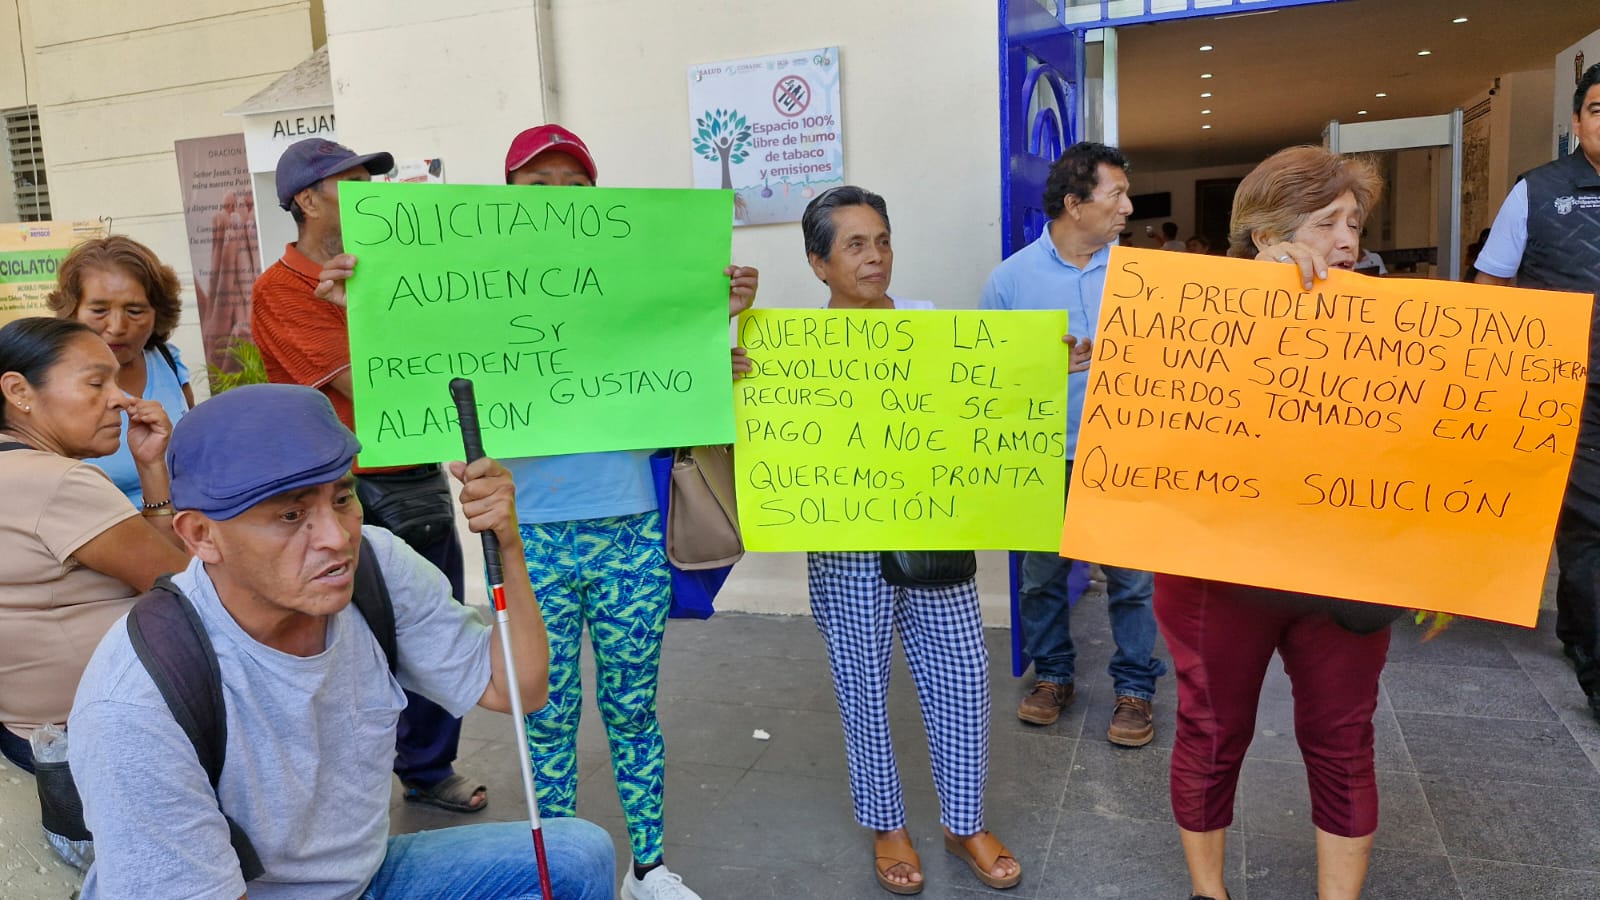 SOLICITAMOS
AUDIENCIA
Sr
PRECIDENTE
GUSTAVO
ALARCON
QUEREMOS LA-
DEVOLUCIÓN DEL-
RECURSO QUE SE LE-
PAGO A NOE RAMOS
QUEREMOS PRONTA
SOLUCIÓN.
Sr. PRECIDENTE GUSTAVO-
ALARCON ESTAMOS EN ESPERA
DE UNA SOLUCIÓN DE LOS
ACUERDOS TOMADOS EN LA-
AUDIENCIA.
QUEREMOS SOLUCIÓN
SALUD
Espacio 100%
libre de humo
de tabaco
y emisiones
ALEJAN
ORACION
Señor Jesús, Tú
mira nuestra Patri
y dispersa por el
CICLATÓN